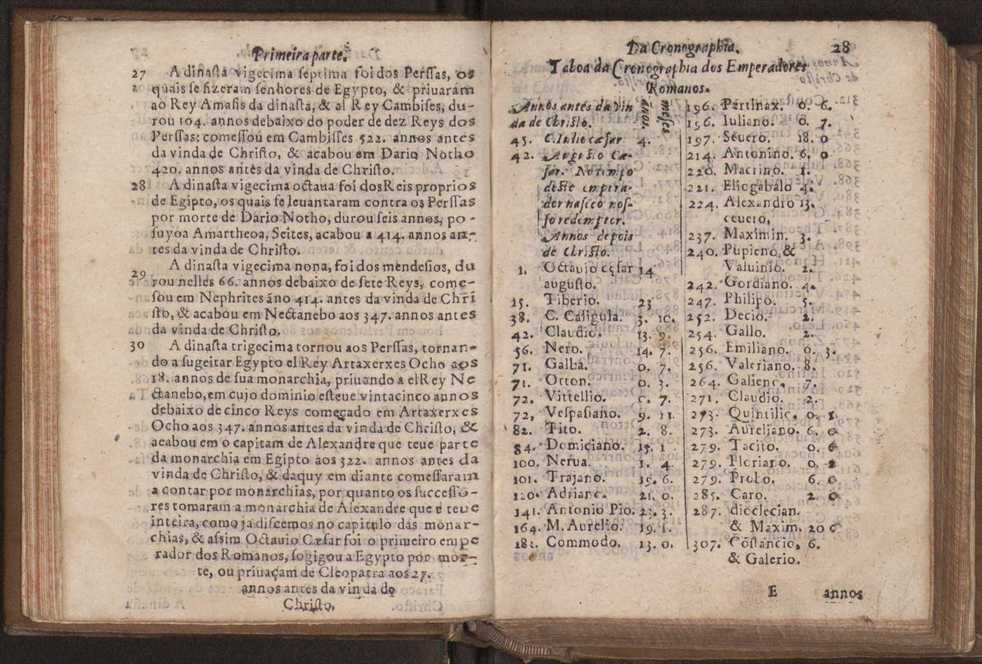 Primeira parte.
27 A dinastia vigecima septima foi dos Perssas, os
quais se fizeram senhores de Egypto, & priuaram
ao Rey Amasis da dinasta, & al Rey Cambises, du-
rou 104. annos debaixo do poder de dez Reys dos
Perssas: comessou em Cambisses 522. annos antes
da vinda de Christo, & acabou em Dario Notho
420. annos antes da vinda de Christo.
28 A dinasta vigecima octaua foi dos Reis proprios
de Egipto, os quais se leuantaram contra os Perssas
por morte de Dario Notho, durou seis annos, po-
suyoa Amartheoa, Seites, acabou a 414. annos an-
tes da vinda de Christo.
29 A dinasta vigecima nona, foi dos mendesios, du
rou nelles 66. annos debaixo de sete Reys, come-
sou em Nephrites ãno 414. antes da vinda de Chri
sto, & acabou em Nectanebo aos 347. annos antes
da vinda de Christo.
30 A dinasta trigecima tornou aos Perssas, tornan-
do a sugeitar Egypto el Rey Artaxerxes Ocho aos
18. annos de sua monarchia, priuando a elRey Ne
ctanebo, em cujo dominio esteue vinta cinco annos
debaixo de cinco Reys começado em Artaxerxes
Ocho aos 347. annos antes da vinda de Christo, &
acabou em o capitam de Alexandre que teue parte
da monarchia em Egipto aos 322. annos antes da
vinda de Christo, & daquy em diante comessaram
a contar por monarchias, por quanto os successo-
res tomaram a monarchia de Alexandre que e teue
inteira, como ja discemos no capitulo das monar-
chias, & assim Octauio Cæsar foi o primeiro empe
rador dos Romanos, sogigou a Egypto por mor-
te, ou priuaçam de Cleopatra aos 27.
annos antes da vinda de
Christo.
Da Cronographia. 28
Taboa da Cronographia dos Emperadores
Romanos.
Annos antes da vin
da de Christo.
annos. meses
45. C. Iulio cæsar 4.
42. Augusto Cæ-
sar. No tempo
deste empera-
dor nasceo nos-
so redemptor.
Annos depois
de Christo.
1. Octauio cęsar 14
augusto.
15. Tiberio. 23
38. C. Caligula. 3. 10.
42. Claudio. 13. 9.
56. Nero. 14. 7.
71. Galba. 0. 7.
71. Otton. 0. 3.
72. Vittellio. 0. 7.
72. Vespasiano. 9. 11.
82. Tito. 2. 8.
84. Domiciano. 15. 1
100. Nerua. 1. 4
101. Trajano. 19. 6.
120. Adriano. 21. 0.
141. Antonio Pio. 22. 3.
164. M. Aurelio. 19. 1.
182. Commodo. 13. 0.
196. Partinax. 0. 6.
196. Iuliano. 0. 7.
197. Seuero. 18. 0
214. Antonino. 6. 0
220. Macrino. 1.
221. Eliogabalo 4.
224. Alexandro 13.
seuero.
237. Maximin. 3.
240. Pupieno, &
Valuinio. 2.
242. Gordiano. 4.
247. Philipo. 5.
252. Decio. 2.
254. Gallo. 2.
256. Emiliano. 0. 3.
256. Valeriano. 8.
264. Galieno. 7.
271. Claudio. 2.
273. Quintilio. 0.
273. Aureliano. 6. 0
279. Tacito. 0. 6
279. Floriano. 0.
279. Probo. 6. 0
285. Caro. 2. 0
287. dioclecian.
& Maxim. 20 0
307. Cõstancio, 6.
& Galerio.
E annos